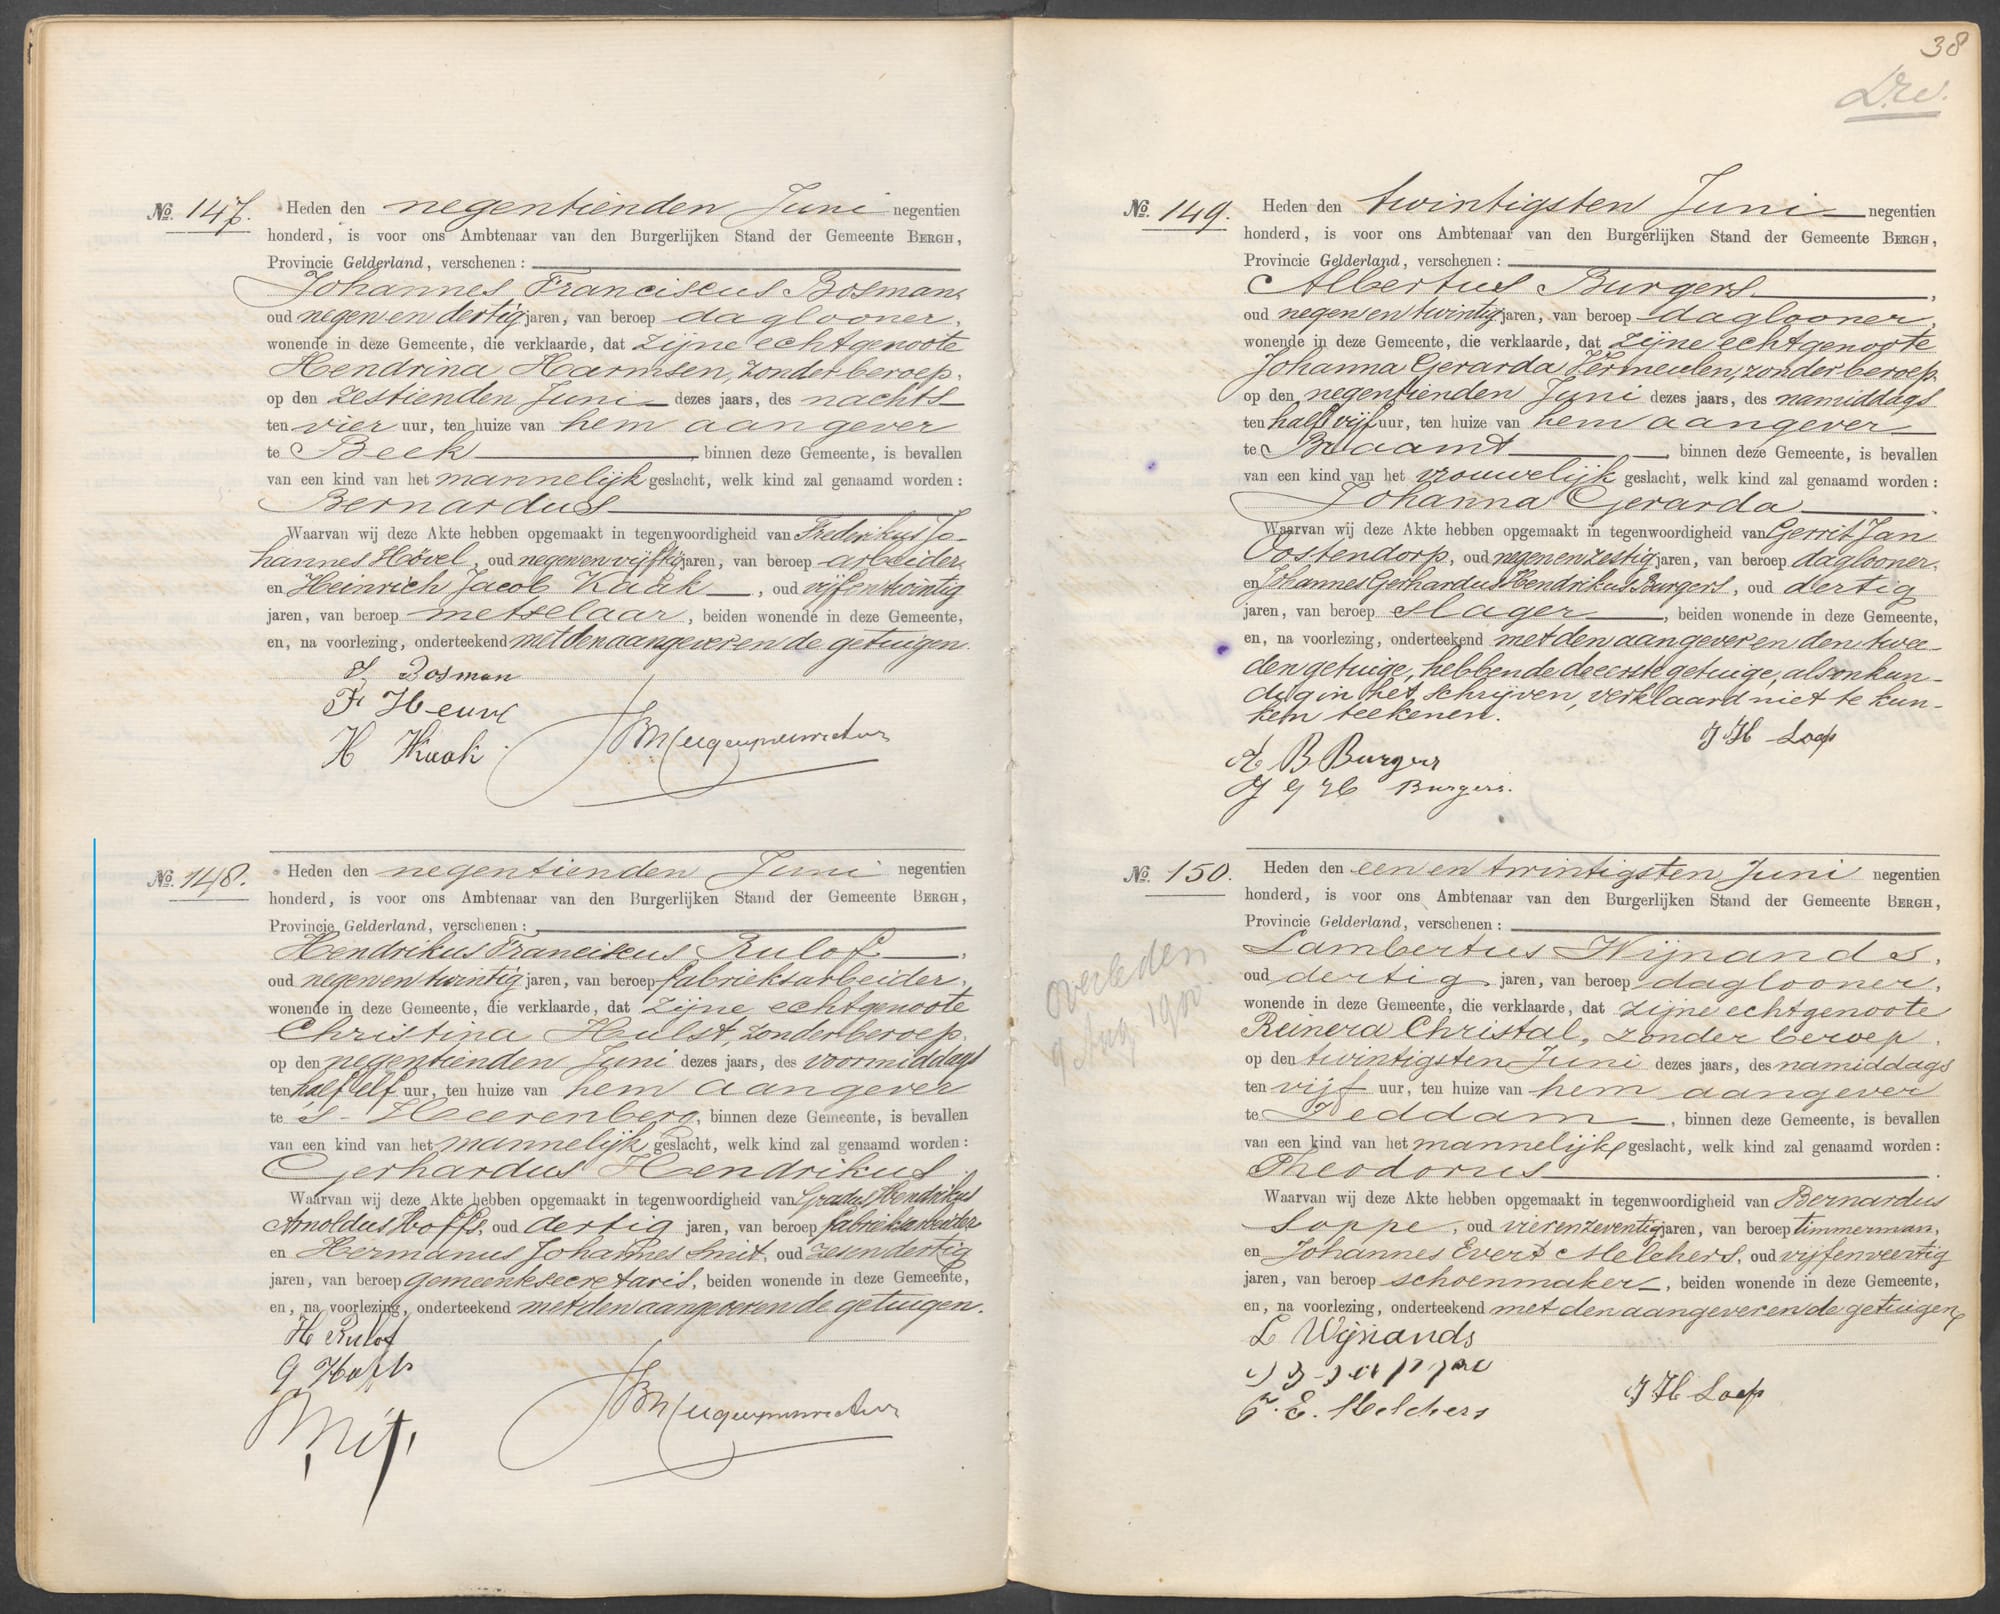 No. 147. Heden den negentienden Juni negentien
honderd, is voor ons Ambtenaar van den Burgerlijken Stand der Gemeente BERGH,
Provincie Gelderland, verschenen:
Johannes Franciscus Bosman,
oud negen en dertig jaren, van beroep daglooner,
wonende in deze Gemeente, die verklaarde, dat zijne echtgenoote
Hendrina Harmsen, zonder beroep,
op den zestienden Juni dezes jaars, des nachts
ten vier uur, ten huize van hem aangever
te Beek, binnen deze Gemeente, is bevallen
van een kind van het mannelijk geslacht, welk kind zal genaamd worden:
Bernardus
Waarvan wij deze Akte hebben opgemaakt in tegenwoordigheid van Frederikus Jo-
hannes Hövel, oud negen en vijftig jaren, van beroep arbeider,
en Heinrich Jacob Kaäk, oud vijf en twintig
jaren, van beroep metselaar, beiden wonende in deze Gemeente,
en, na voorlezing, onderteekend met den aangever en de getuigen.
J. Bosman
F Heuvel
H Kaak
No. 148. Heden den negentienden Juni negentien
honderd, is voor ons Ambtenaar van den Burgerlijken Stand der Gemeente BERGH,
Provincie Gelderland, verschenen:
Hendrikus Franciskus Rulof,
oud negen en twintig jaren, van beroep fabrieksarbeider,
wonende in deze Gemeente, die verklaarde, dat zijne echtgenoote
Christina Hulst, zonder beroep,
op den negentienden Juni dezes jaars, des voormiddags
ten half elf uur, ten huize van hem aangever
te 's-Heerenberg, binnen deze Gemeente, is bevallen
van een kind van het mannelijk geslacht, welk kind zal genaamd worden:
Gerhardus Hendrikus.
Waarvan wij deze Akte hebben opgemaakt in tegenwoordigheid van Gradus Hendrikus
Arnoldus Hoffs, oud dertig jaren, van beroep fabrieksarbeider
en Hermanus Johannes Smit, oud zes en dertig
jaren, van beroep gemeentesecretaris, beiden wonende in deze Gemeente,
en, na voorlezing, onderteekend met den aangever en de getuigen.
H Rulof
G Hoffs
Smit
38
No. 149. Heden den twintigsten Juni negentien
honderd, is voor ons Ambtenaar van den Burgerlijken Stand der Gemeente BERGH,
Provincie Gelderland, verschenen:
Albertus Burgers,
oud negen en twintig jaren, van beroep daglooner,
wonende in deze Gemeente, die verklaarde, dat zijne echtgenoote
Johanna Gerarda Vermeulen, zonder beroep,
op den negentienden Juni dezes jaars, des namiddags
ten half vijf uur, ten huize van hem aangever
te Braamt, binnen deze Gemeente, is bevallen
van een kind van het vrouwelijk geslacht, welk kind zal genaamd worden:
Johanna Gerarda.
Waarvan wij deze Akte hebben opgemaakt in tegenwoordigheid van Gerrit Jan
Oostendorp, oud negen en zestig jaren, van beroep daglooner,
en Johannes Gerhardus Hendrikus Burgers, oud dertig
jaren, van beroep slager, beiden wonende in deze Gemeente,
en, na voorlezing, onderteekend met den aangever en den twee-
den getuige, hebbende de eerste getuige, als onkun-
dig in het schrijven, verklaard niet te kun-
nen teekenen.
J H Loep
A B Burgers
J G H Burgers.
No. 150. Heden den een en twintigsten Juni negentien
honderd, is voor ons Ambtenaar van den Burgerlijken Stand der Gemeente BERGH,
Provincie Gelderland, verschenen:
Lambertus Wijnands,
oud dertig jaren, van beroep daglooner,
wonende in deze Gemeente, die verklaarde, dat zijne echtgenoote
Reinera Christal, zonder beroep,
op den twintigsten Juni dezes jaars, des namiddags
ten vijf uur, ten huize van hem aangever
te Zeddam, binnen deze Gemeente, is bevallen
van een kind van het mannelijk geslacht, welk kind zal genaamd worden:
Theodorus.
Waarvan wij deze Akte hebben opgemaakt in tegenwoordigheid van Bernardus
Soppe, oud vier en zeventig jaren, van beroep timmerman,
en Johannes Evert Melchers, oud vijf en veertig
jaren, van beroep schoenmaker, beiden wonende in deze Gemeente,
en, na voorlezing, onderteekend met den aangever en de getuigen,
L Wijnands
J. E. Melchers
J H Loep
overleden
9 Aug. 1900.